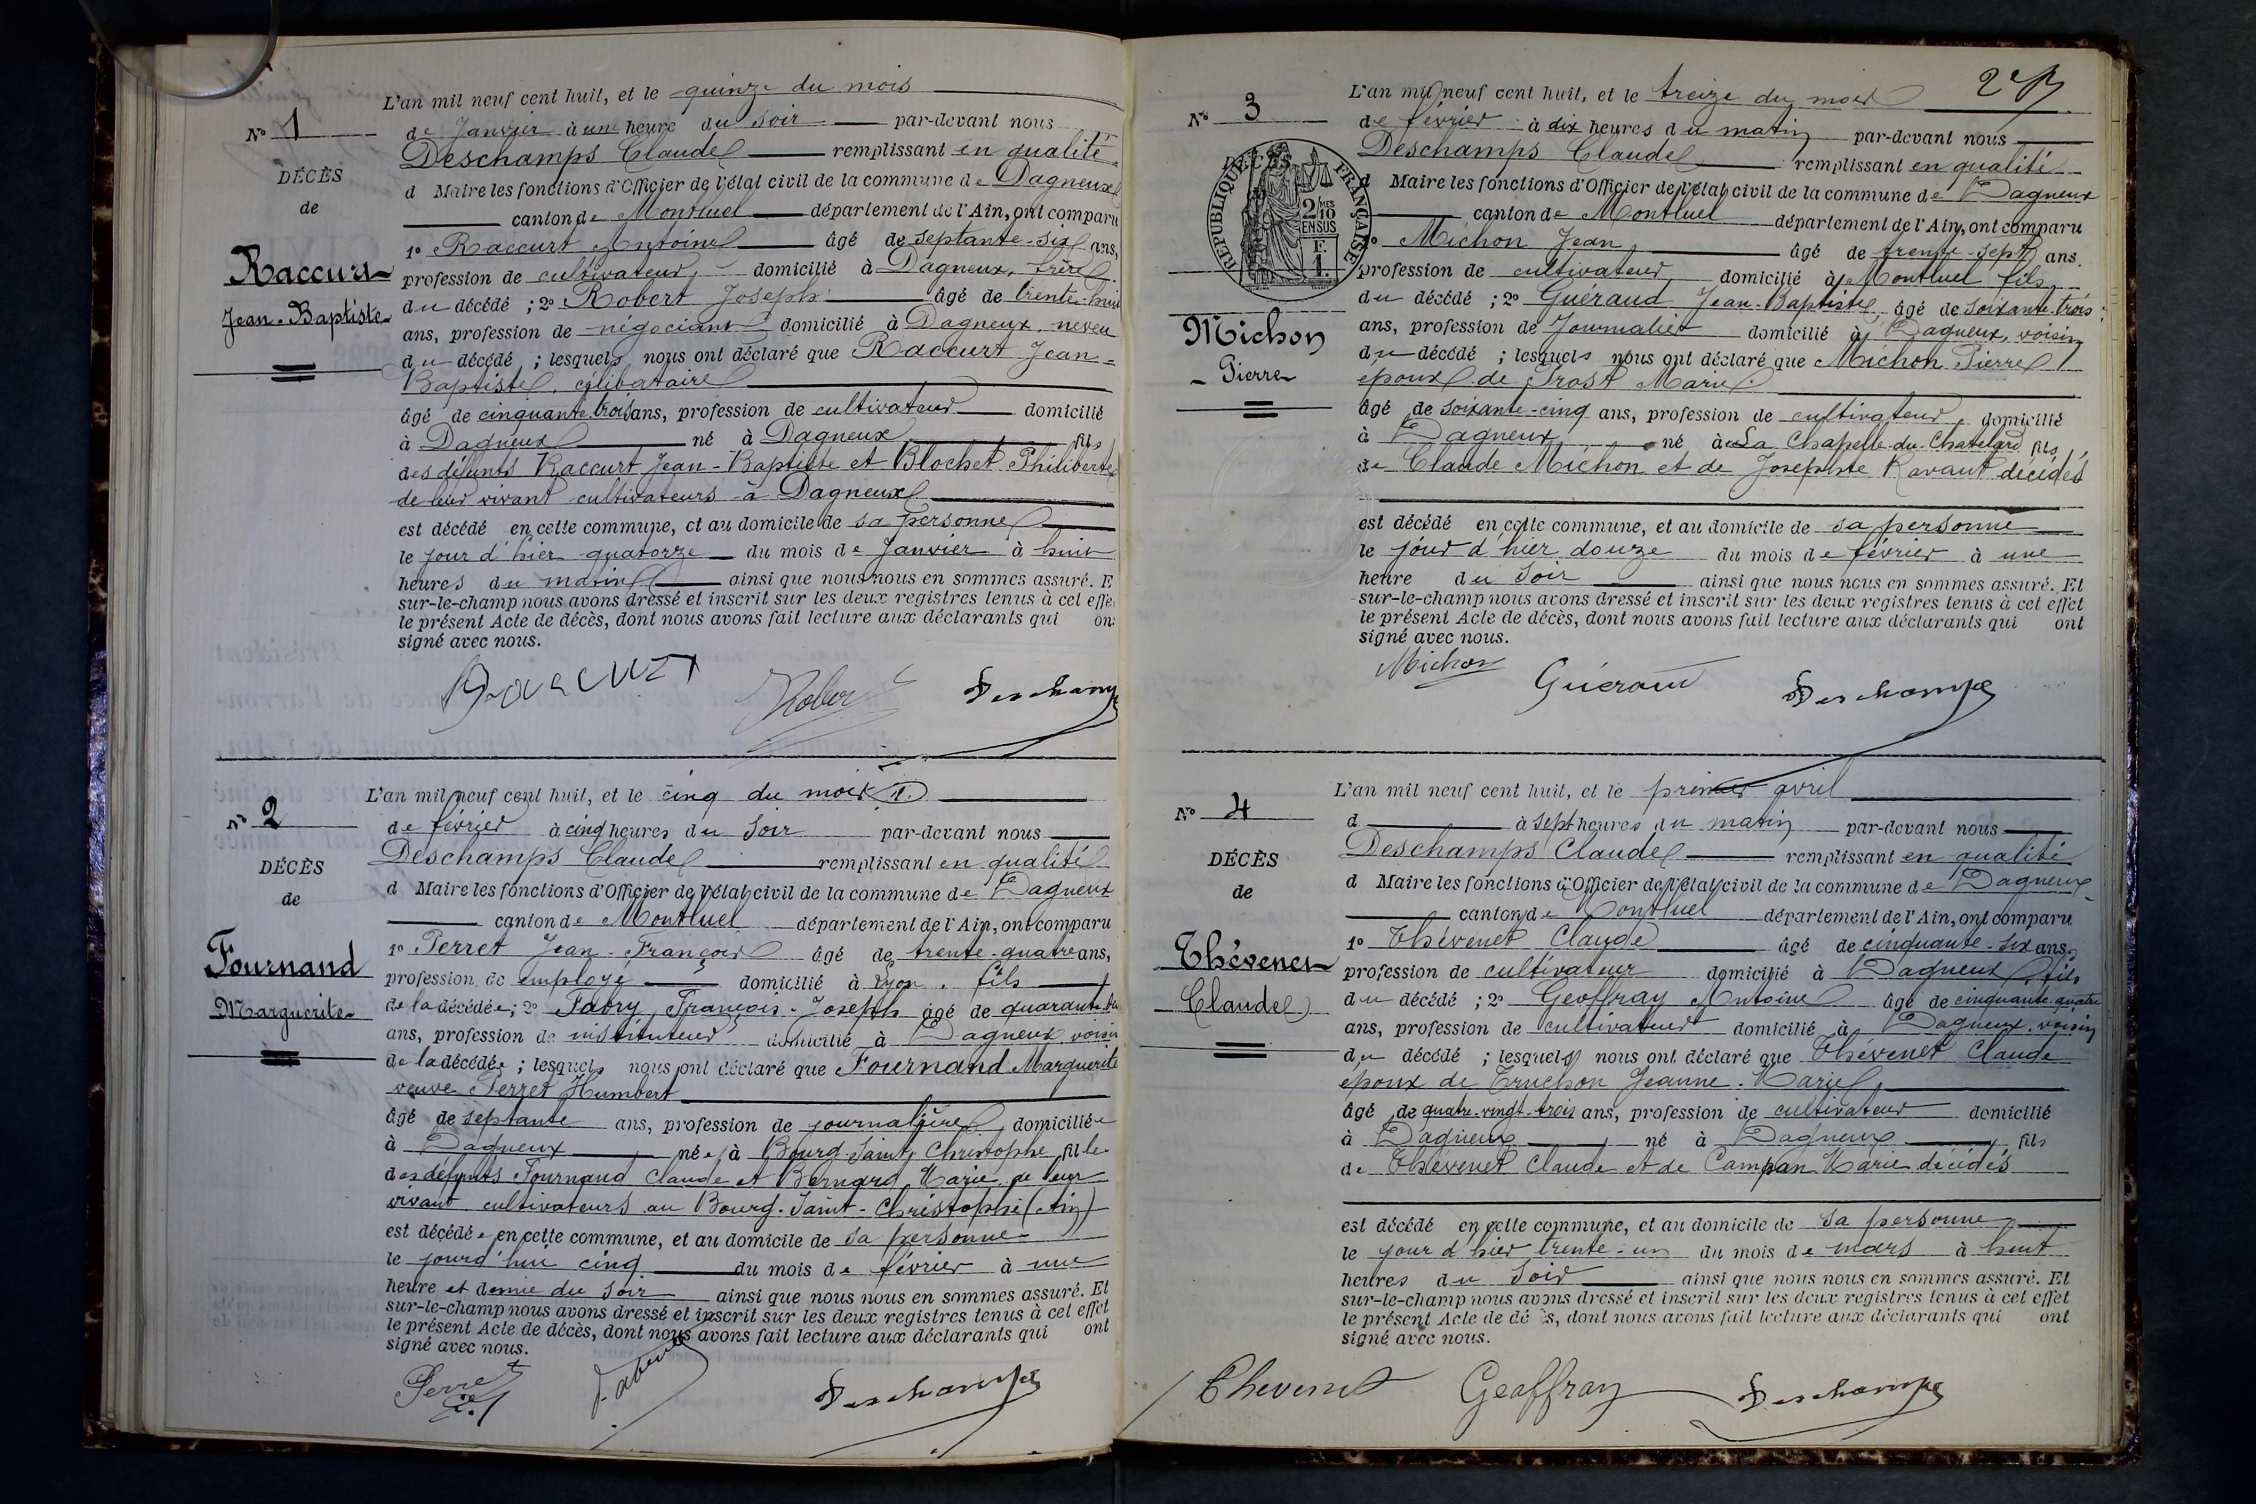 L'an mil neuf cent huit, et le quinze du mois
No 1
de Janvier à une heure du soir par-devant nous
Deschamps Claude remplissant en qualité
DÉCÈS
d Maire les fonctions d'Officier de l'état civil de la commune de Dagneux
de
canton de Montluel département de l'Ain, ont comparu
1o Raccurt Antoine âgé de septante-six ans,
Raccurt
profession de cultivateur, domicilié à Dagneux, frère
Jean-Baptiste
du décédé ; 2o Robert Joseph âgé de trente-huit
ans, profession de négociant domicilié à Dagneux, neveu
du décédé ; lesquels nous ont déclaré que Raccurt Jean-
Baptiste, célibataire
âgé de cinquante trois ans, profession de cultivateur domicilié
à Dagneux né à Dagneux fils
des défunts Raccurt Jean-Baptiste et Blochet Philiberte
de leur vivant cultivateurs à Dagneux
est décédé en cette commune, et au domicile de sa personne
le jour d'hier quatorze du mois de Janvier à huit
heures du matin ainsi que nous nous en sommes assuré. E
sur-le-champ nous avons dressé et inscrit sur les deux registres tenus à cet effe
le présent Acte de décès, dont nous avons fait lecture aux déclarants qui on
signé avec nous.
Raccurt Robert Deschamps
L'an mil neuf cent huit, et le cinq du mois
No 2
de février à cinq heures du soir par-devant nous
Deschamps Claude remplissant en qualité
DÉCÈS
d Maire les fonctions d'Officier de l'état civil de la commune de Dagneux
de
canton de Montluel département de l'Ain, ont comparu
1o Perret Jean-François âgé de trente-quatre ans,
Fournand
profession de employé domicilié à Lyon, fils
Marguerite
de la décédée ; 2o Favry François-Joseph âgé de quarante
ans, profession de instituteur domicilié à Dagneux voisin
de la décédée ; lesquels nous ont déclaré que Fournand Marguerite
veuve Perret Humbert
âgé de septante ans, profession de journalière, domiciliée
à Dagneux née à Bourg-Saint-Christophe fille
des défunts Fournand Claude et Bernard Marie de leur
vivant cultivateurs au Bourg-Saint-Christophe (Ain)
est décédée en cette commune, et au domicile de sa personne
le jourd'hui cinq du mois de février à une
heure et demie du soir ainsi que nous nous en sommes assuré. Et
sur-le-champ nous avons dressé et inscrit sur les deux registres tenus à cet effet
le présent Acte de décès, dont nous avons fait lecture aux déclarants qui ont
signé avec nous.
Perret Deschamps
L'an mil neuf cent huit, et le treize du mois
No 3
de février à dix heures du matin par-devant nous
Deschamps Claude remplissant en qualité
d Maire les fonctions d'Officier de l'état civil de la commune de Dagneux
canton de Montluel département de l'Ain, ont comparu
RÉPUBLIQUE FRANÇAISE
2 MES 10 EN SUS
F. 1.
1o Michon Jean âgé de trente-sept ans.
profession de cultivateur domicilié à Montluel fils
du décédé ; 2o Guéraud Jean-Baptiste âgé de soixante-trois
Michon
Pierre
ans, profession de Journalier domicilié à Dagneux, voisin
du décédé ; lesquels nous ont déclaré que Michon Pierre
époux de Prost Marie
âgé de soixante-cinq ans, profession de cultivateur, domicilié
à Dagneux né à La Chapelle-du-Chatelard fils
de Claude Michon et de Josephte Ravaut décédés
est décédé en cette commune, et au domicile de sa personne
le jour d'hier douze du mois de février à une
heure du soir ainsi que nous nous en sommes assuré. Et
sur-le-champ nous avons dressé et inscrit sur les deux registres tenus à cet effet
le présent Acte de décès, dont nous avons fait lecture aux déclarants qui ont
signé avec nous.
Michon Guéraud Deschamps
L'an mil neuf cent huit, et le premier avril
No 4
d à sept heures du matin par-devant nous
Deschamps Claude remplissant en qualité
DÉCÈS
d Maire les fonctions d'Officier de l'état civil de la commune de Dagneux
de
canton de Montluel département de l'Ain, ont comparu
1o Thévenet Claude âgé de cinquante-six ans,
Thévenet
profession de cultivateur domicilié à Dagneux fils
Claude
du décédé ; 2o Geoffray Antoine âgé de cinquante-quatre
ans, profession de cultivateur domicilié à Dagneux, voisin
du décédé ; lesquels nous ont déclaré que Thévenet Claude
époux de Truchon Jeanne-Marie
âgé de quatre-vingt-trois ans, profession de cultivateur domicilié
à Dagneux né à Dagneux fils
de Thévenet Claude et de Campan Marie décédés
est décédé en cette commune, et au domicile de sa personne
le jour d'hier trente-un du mois de mars à huit
heures du soir ainsi que nous nous en sommes assuré. Et
sur-le-champ nous avons dressé et inscrit sur les deux registres tenus à cet effet
le présent Acte de dé ès, dont nous avons fait lecture aux déclarants qui ont
signé avec nous.
Thevenet Geoffray Deschamps